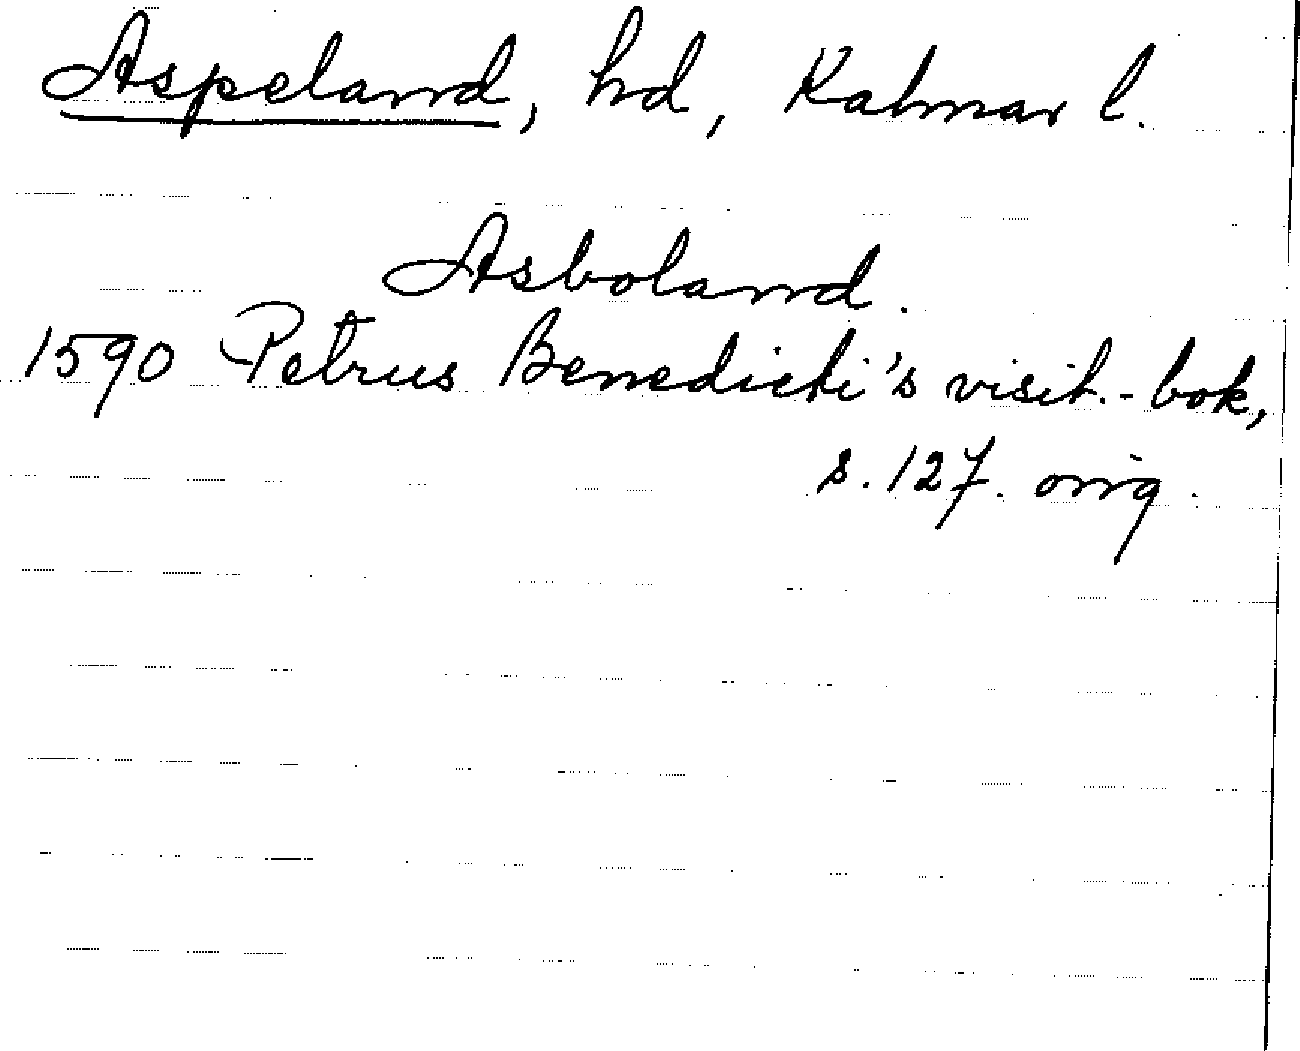 Aspeland, hd, Kalmar l.
Asboland.
1590 Petrus Benedicti's visit.-bok,
s. 127. orig.